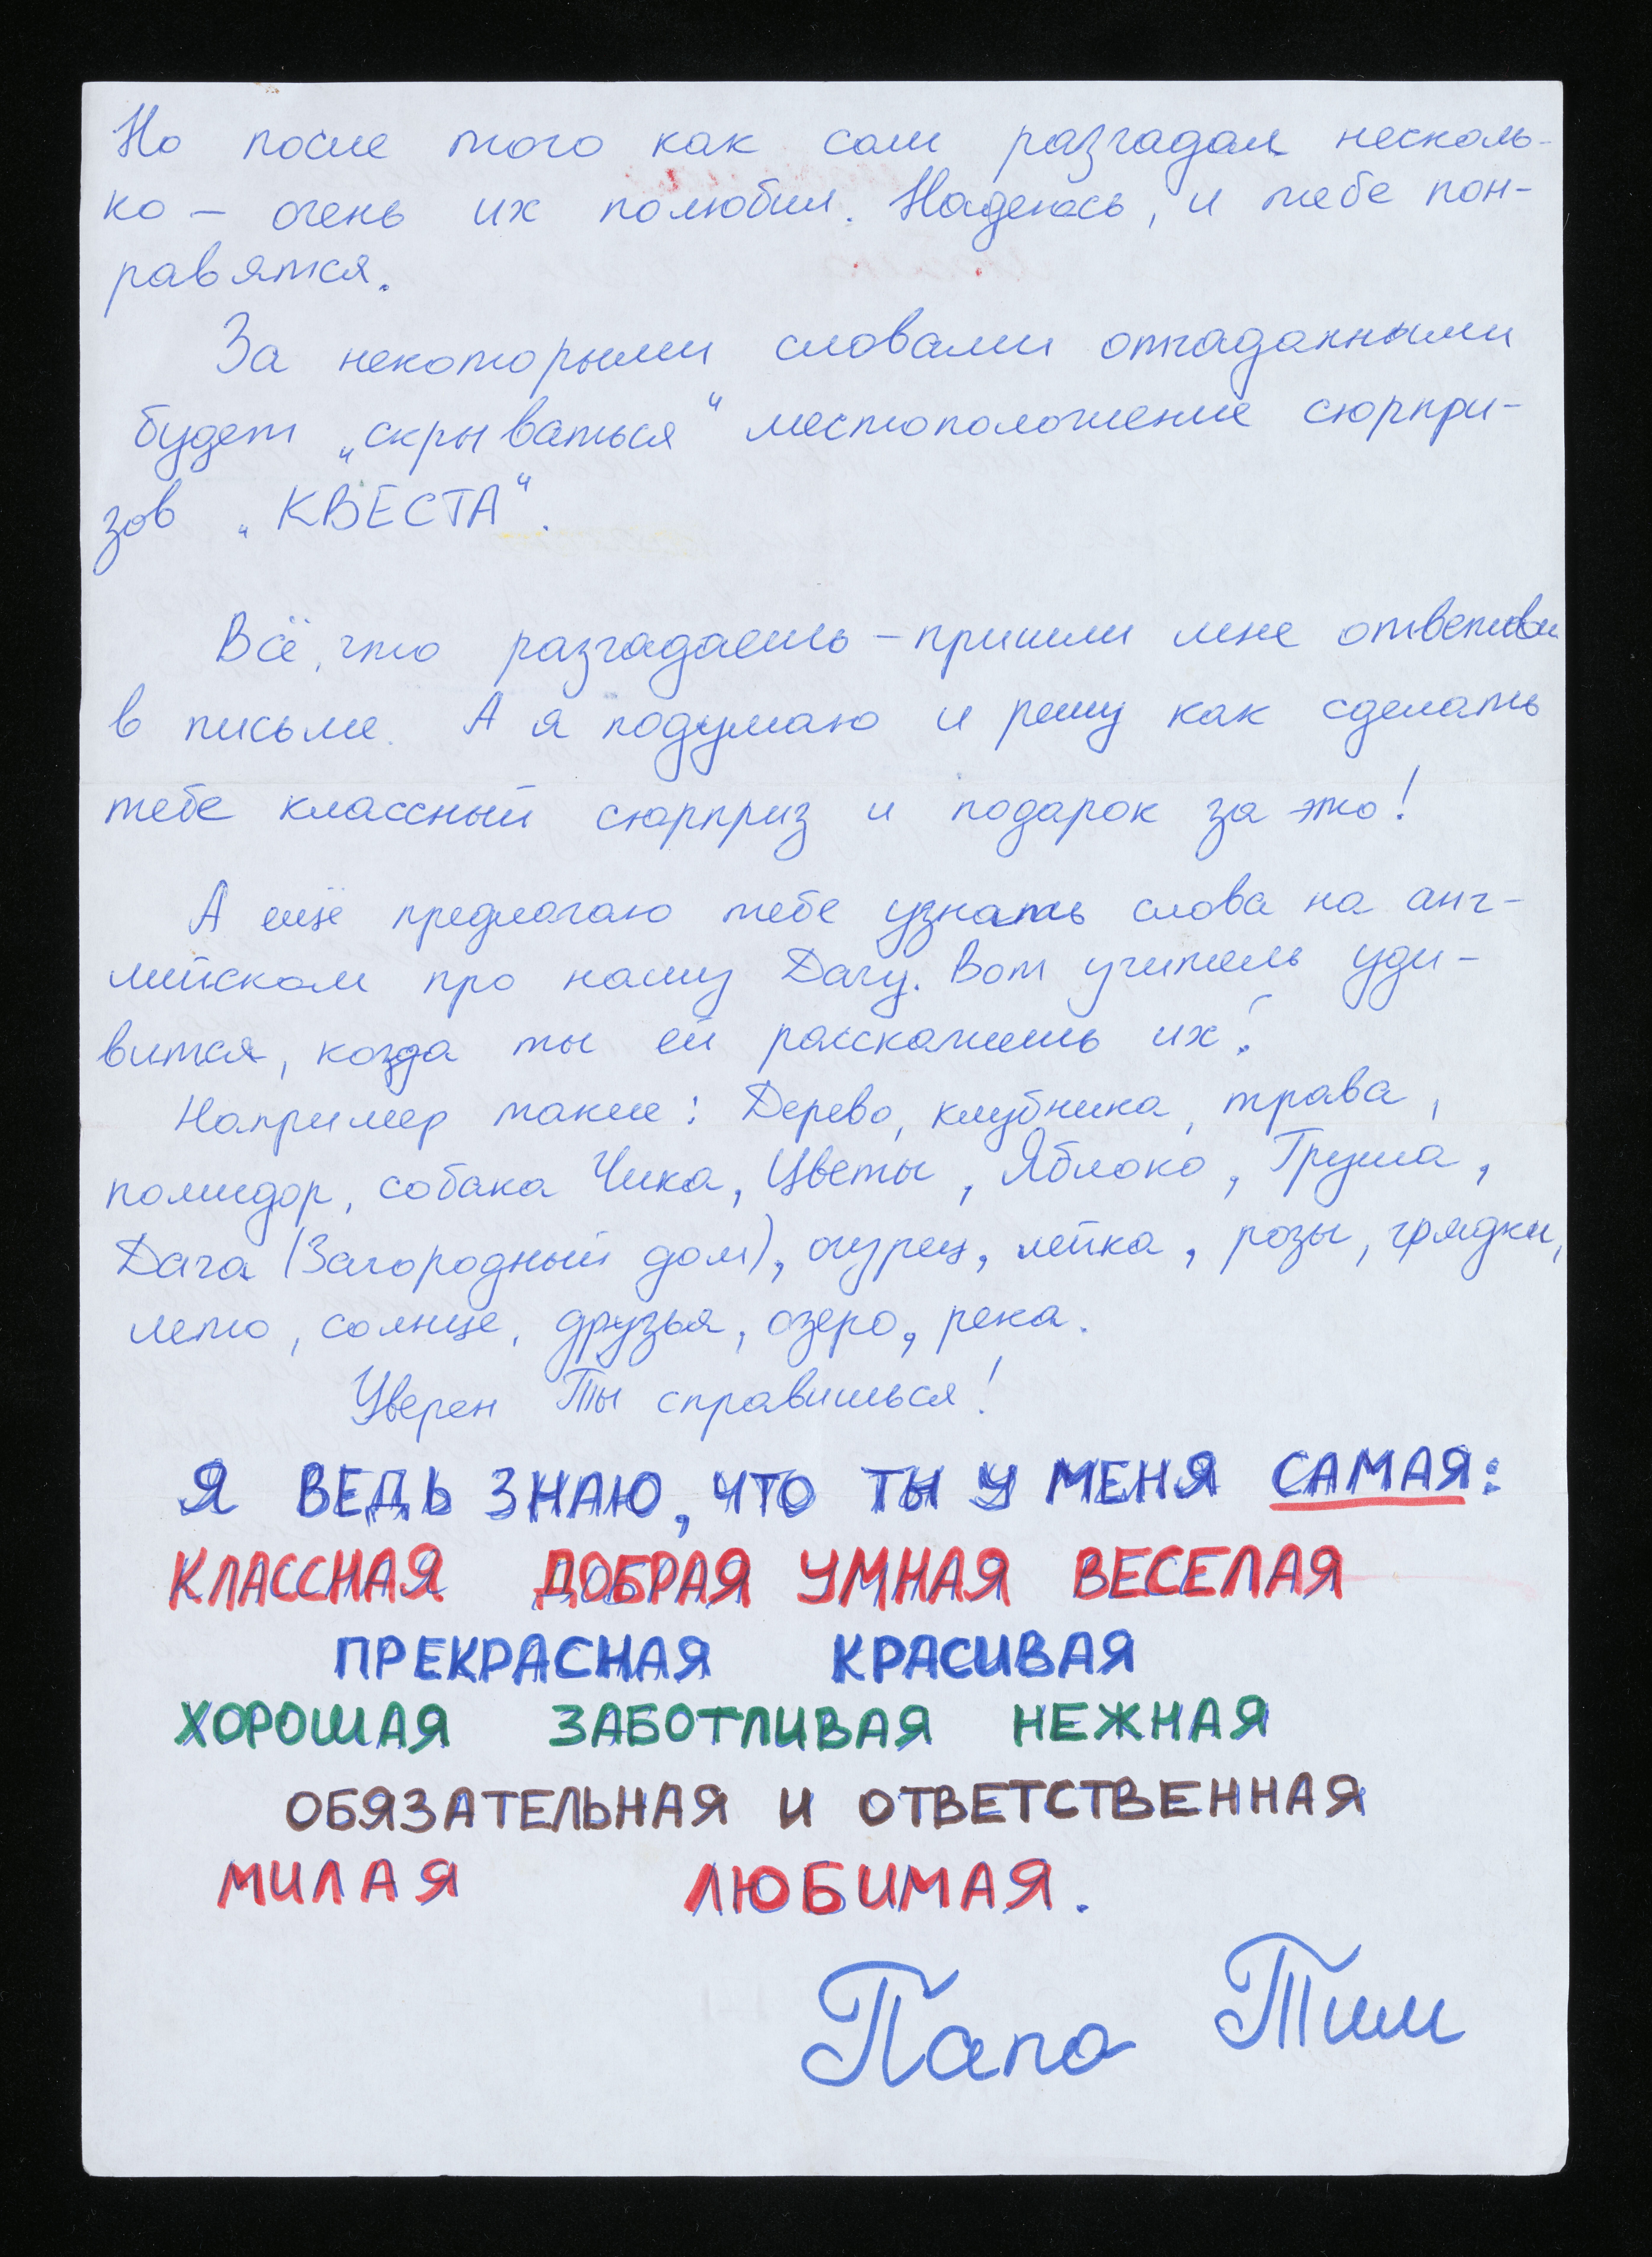 Но после того как сам разгадал несколь-
ко — очень их полюбил. Надеюсь, и тебе пон-
равятся.
За некоторыми словами отгаданными
будет „скрываться“ местоположение сюрпри-
зов „КВЕСТА“.
Всё, что разгадаешь — пришли мне ответы
в письме. А я подумаю и решу как сделать
тебе классный сюрприз и подарок за это!
А ещё предлагаю тебе узнать слова на анг-
лийском про нашу Дачу. Вот учитель уди-
вится, когда ты ей расскажешь их!
Например такие: Дерево, клубника, трава,
помидор, собака Чика, Цветы, Яблоко, Груша,
Дача (Загородный дом), огурец, лейка, розы, грядки,
лето, солнце, друзья, озеро, река.
Уверен Ты справишься!
Я ВЕДЬ ЗНАЮ, ЧТО ТЫ У МЕНЯ САМАЯ:
КЛАССНАЯ ДОБРАЯ УМНАЯ ВЕСЕЛАЯ
ПРЕКРАСНАЯ КРАСИВАЯ
ХОРОШАЯ ЗАБОТЛИВАЯ НЕЖНАЯ
ОБЯЗАТЕЛЬНАЯ И ОТВЕТСТВЕННАЯ
МИЛАЯ ЛЮБИМАЯ.
Папа Тим